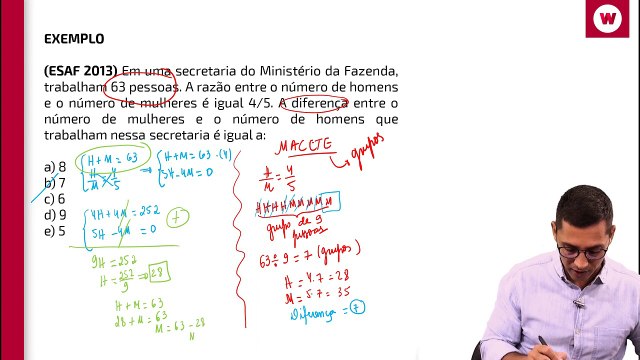 W
EXEMPLO
(ESAF 2013) Em uma secretaria do Ministério da Fazenda,
trabalham 63 pessoas. A razão entre o número de homens
e o número de mulheres é igual 4/5. A diferença entre o
número de mulheres e o número de homens que
trabalham nessa secretaria é igual a:
a) 8
b) 7
c) 6
d) 9
e) 5
H+M=63
H/M = 4/5
H+M=63 ·(4)
5H-4M=0
4H+4M=252
5H-4M=0
7
9H=252
H=252/9=28
H+M=63
28+M=63
M=63-28
MACETE
grupos
H/M=4/5
HHHHMMMMM
grupo de 9
pessoas
63÷9=7 (grupos)
H=4.7=28
M=5.7=35
Diferença=7